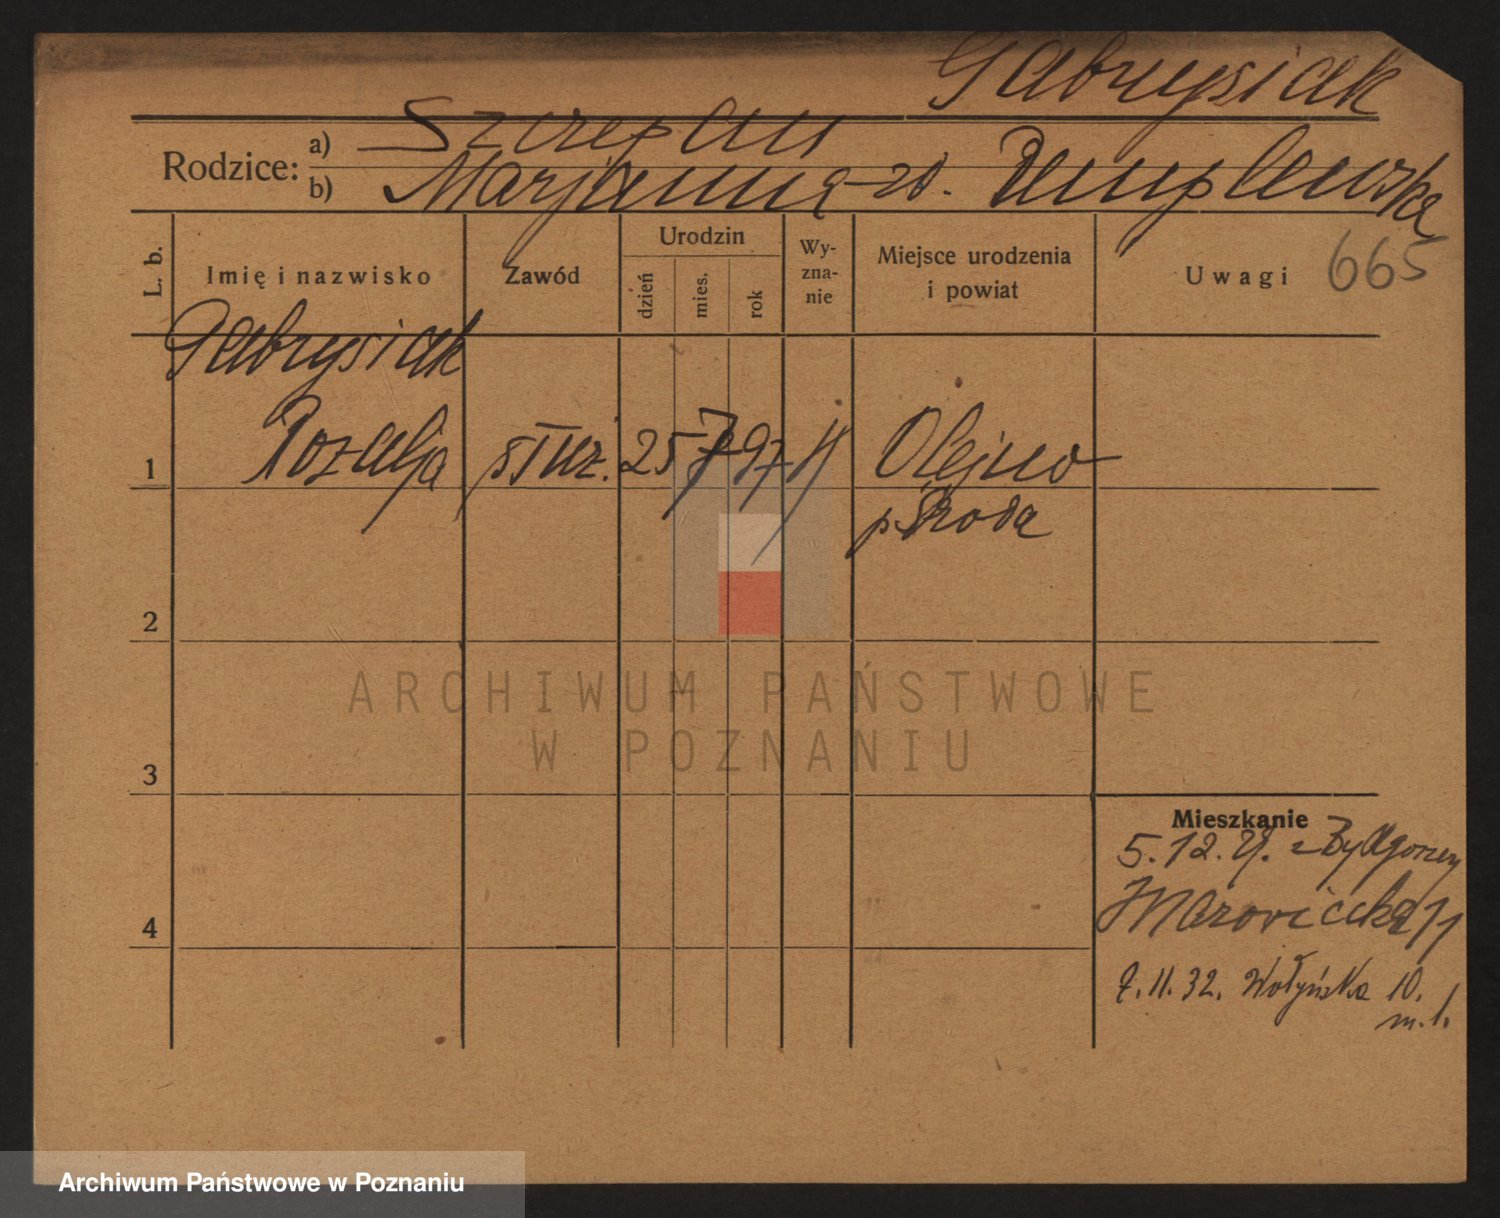 Gabrysiak
Rodzice: a) Szczepan
b) Marjanna zd.
665
L. b. Imię i nazwisko Zawód Urodzin dzień mies. rok Wy-zna-nie Miejsce urodzenia i powiat Uwagi
Gabrysiak
1 Rozalja służ. 25 7 97 Olejno
p. Środa
2
3
4
Mieszkanie
5.12. z Bydgoszczy
Mazowiecka
7.11.32. Wołyńska 10.
m.1.
ARCHIWUM PAŃSTWOWE
W POZNANIU
Archiwum Państwowe w Poznaniu